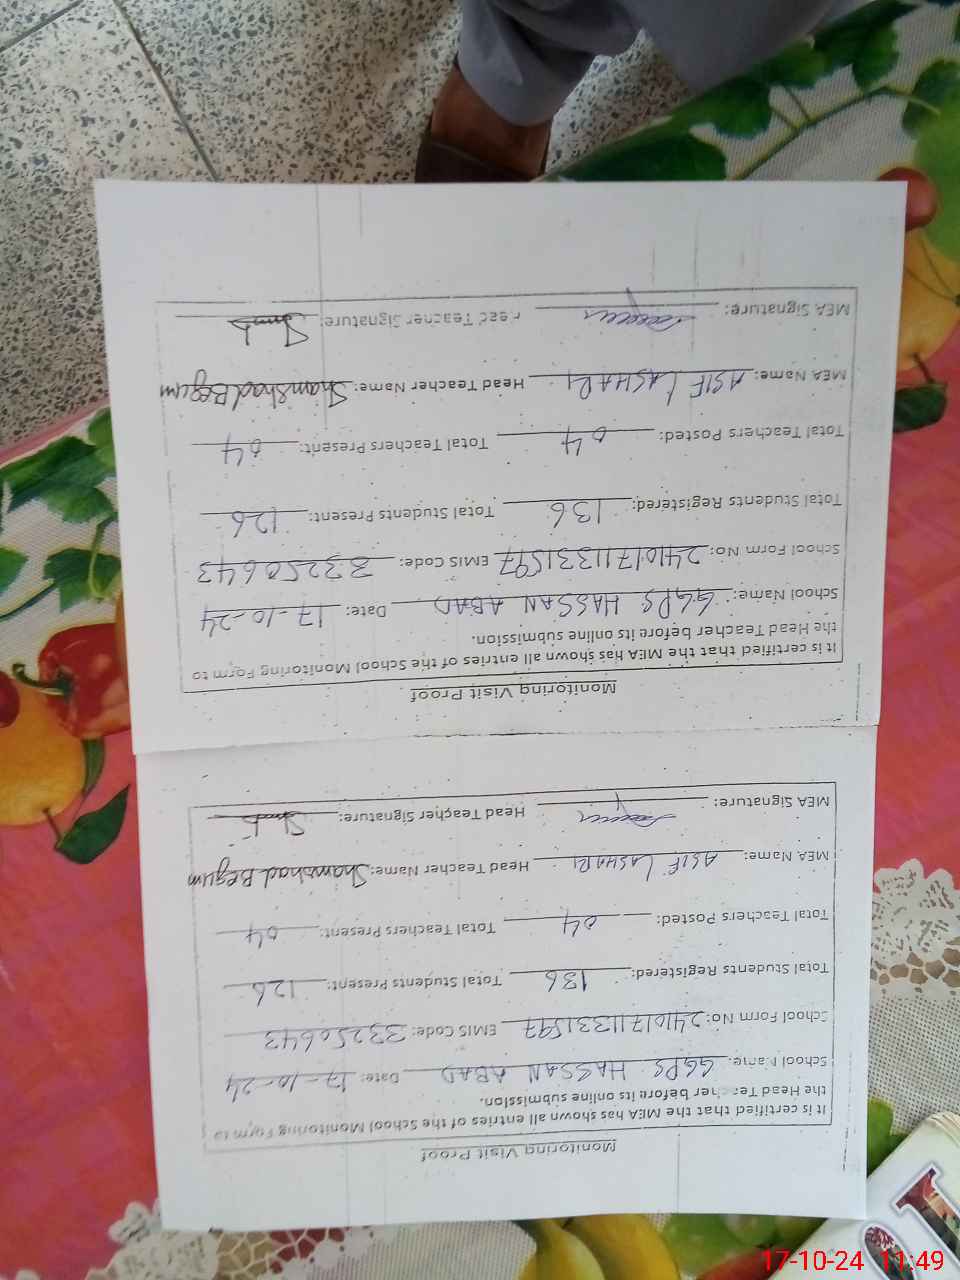 Monitoring Visit Proof
It is certified that the MEA has shown all entries of the School Monitoring Form to
the Head Teacher before its online submission.
School Name: GGPS HASSAN ABAD Date: 17-10-24
School Form No: 24101711331597 EMIS Code: 33250643
Total Students Registered: 136 Total Students Present: 126
Total Teachers Posted: 04 Total Teachers Present: 04
MEA Name: ASIF LASHARI Head Teacher Name: Shamshad Begum
MEA Signature: Head Teacher Signature:
Monitoring Visit Proof
It is certified that the MEA has shown all entries of the School Monitoring Form to
the Head Teacher before its online submission.
School Name: GGPS HASSAN ABAD Date: 17-10-24
School Form No: 24101711331597 EMIS Code: 33250643
Total Students Registered: 136 Total Students Present: 126
Total Teachers Posted: 04 Total Teachers Present: 04
MEA Name: ASIF LASHARI Head Teacher Name: Shamshad Begum
MEA Signature: Head Teacher Signature:
17-10-24 11:49